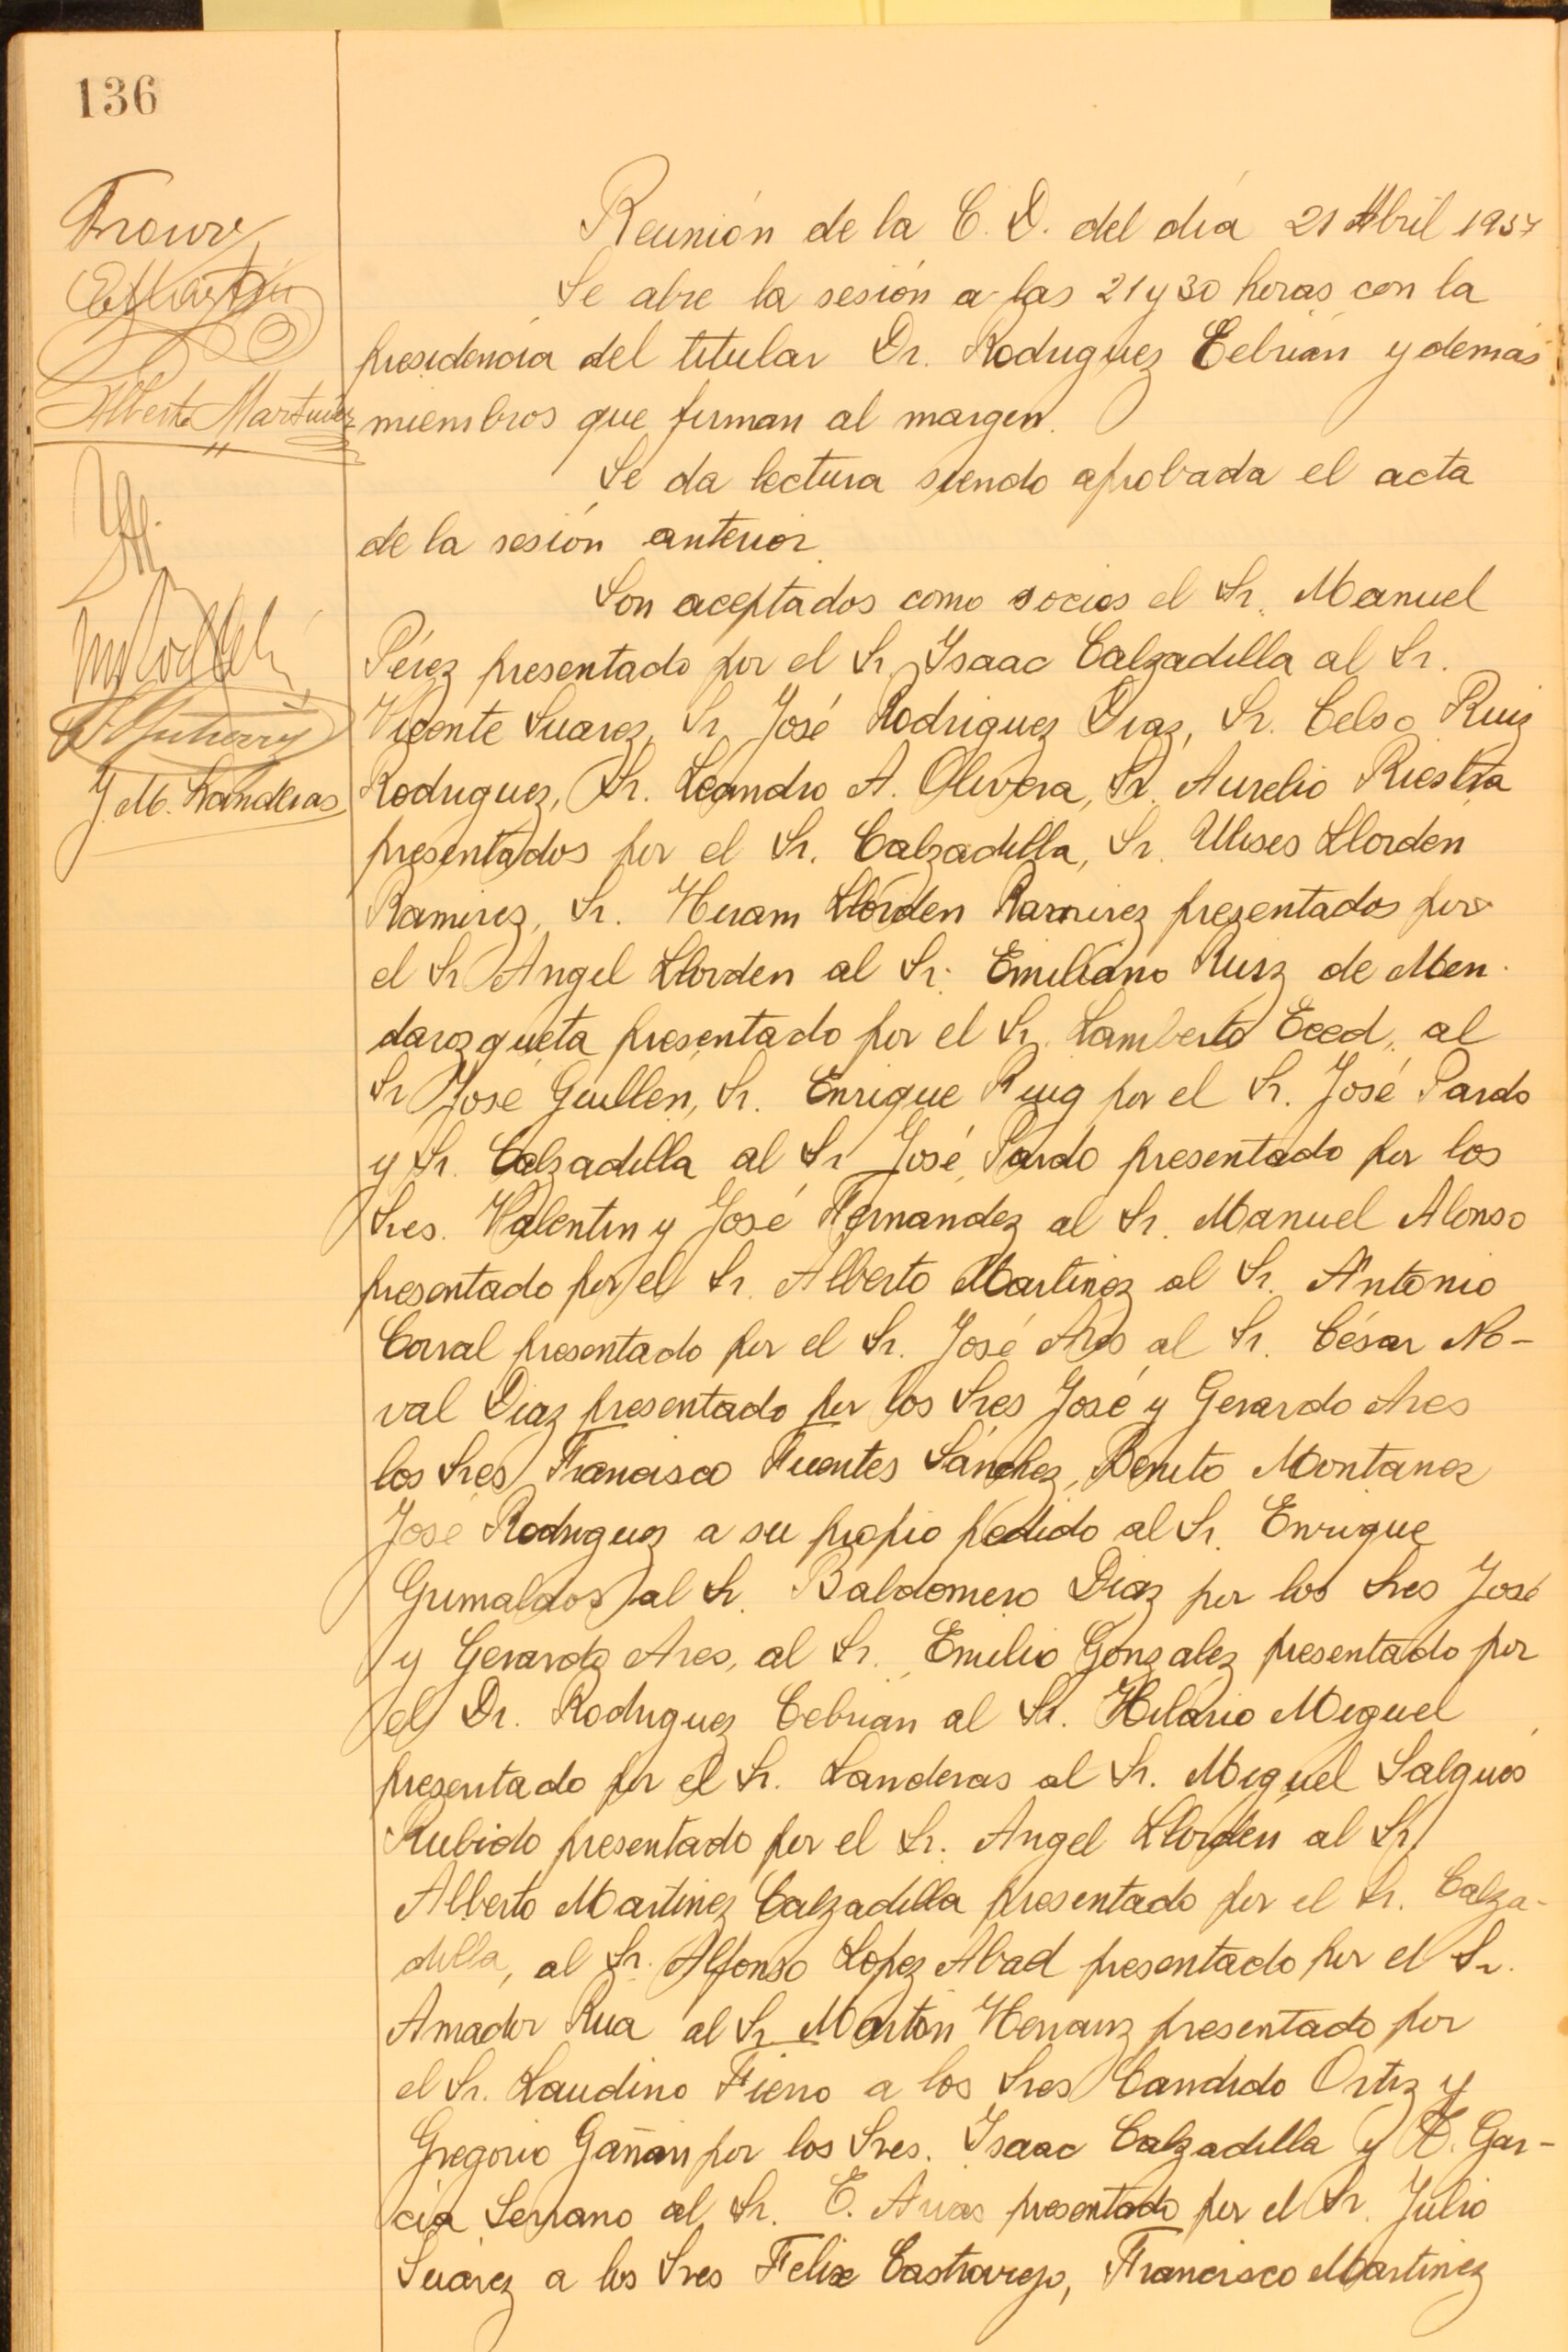 136
E Martín
Alberto Martinez
J. M. Landeras
Reunión de la C. D. del día 21 Abril 1937
Se abre la sesión a las 21 y 30 horas con la
presidencia del titular Dr. Rodriguez Cebrián y demás
miembros que firman al margen.
Se da lectura siendo aprobada el acta
de la sesión anterior.
Son aceptados como socios el Sr. Manuel
Pérez presentado por el Sr. Isaac Calzadilla al Sr.
Vicente Suarez, Sr. José Rodriguez Diaz, Sr. Celso Ruiz
Rodriguez, Sr. Leandro A. Olivera, Sr. Aurelio Riestra
presentados por el Sr. Calzadilla, Sr. Ulises Llorden
Ramirez, Sr. Hiram Llorden Ramirez presentados por
el Sr Angel Llorden al Sr. Emiliano Ruiz de Men-
darozqueta presentado por el Sr. Lamberto Eced, al
Sr José Guillen, Sr. Enrique Puig por el Sr. José Pardo
y Sr. Calzadilla al Sr José Pardo presentado por los
Sres. Valentin y José Fernandez al Sr. Manuel Alonso
presentado por el Sr. Alberto Martinez al Sr. Antonio
Corral presentado por el Sr. José Ares al Sr. César No-
val Diaz presentado por los Sres José y Gerardo Ares
los Sres Francisco Fuentes Sánchez, Benito Montanez
José Rodriguez a su propio pedido al Sr. Enrique
Grimaldos al Sr. Baldomero Diaz por los Sres José
y Gerardo Ares, al Sr. Emilio Gonzalez presentado por
el Dr. Rodriguez Cebrián al Sr. Hilario Miguel
presentado por el Sr. Landeras al Sr. Miguel Salgues
Rubido presentado por el Sr. Angel Llorden al Sr
Alberto Martinez Calzadilla presentado por el Sr. Calza-
dilla, al Sr. Alfonso Lopez Abad presentado por el Sr.
Amador Rua al Sr Martin Herranz presentado por
el Sr. Laudino Fierro a los Sres Candido Ortiz y
Gregorio Gañan por los Sres. Isaac Calzadilla y T. Gar-
cia Serrano al Sr. E. Arias presentado por el Sr. Julio
Suárez a los Sres Felix Castroviejo, Francisco Martinez